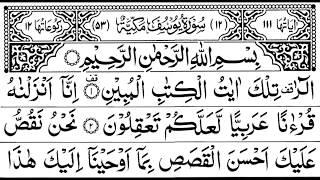 اٰیَاتُهَا ١١١ (١٢) سُوْرَةُ يُوْسُفَ مَكِّيَّةٌ (٥٣) رُكُوْعَاتُهَا ١٢
بِسْمِ اللّٰهِ الرَّحْمٰنِ الرَّحِيْمِ
الٓرٰ ۫ تِلْكَ اٰيٰتُ الْكِتٰبِ الْمُبِيْنِ ۟ اِنَّاۤ اَنْزَلْنٰهُ
قُرْءٰنًا عَرَبِيًّا لَّعَلَّكُمْ تَعْقِلُوْنَ ۟ نَحْنُ نَقُصُّ
عَلَيْكَ اَحْسَنَ الْقَصَصِ بِمَاۤ اَوْحَيْنَاۤ اِلَيْكَ هٰذَا